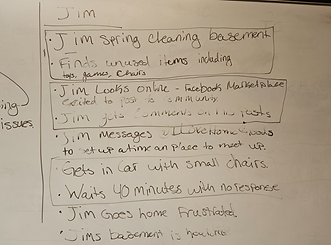 Jim
· Jim Spring cleaning basement
· Finds unused items including
toys, games, chairs
ing
issues.
· Jim Looks online - Facebook Marketplace
excited to post is community
· Jim gets comments on the posts
· Jim Messages Home Goods
to set up a time an place to meet up.
· Gets in Car with small chairs.
· Waits 40 minutes with no response
· Jim Goes home Frustrated
· Jims basement is